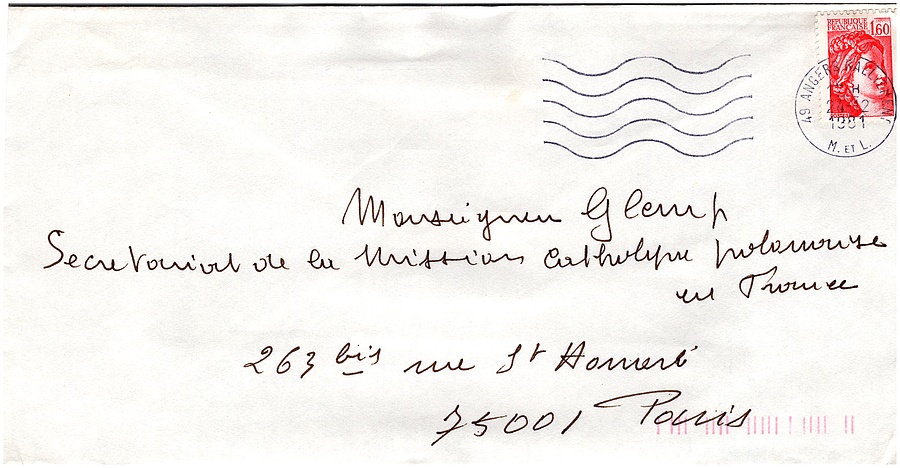 REPUBLIQUE
FRANÇAISE 1,60
49 ANGERS RALLIEMENT
H
12
1981
M. ET L.
Monseigneur Glemp
Secretariat de la Mission Catholique polonaise
en France
263 bis rue St Honoré
75001 Paris